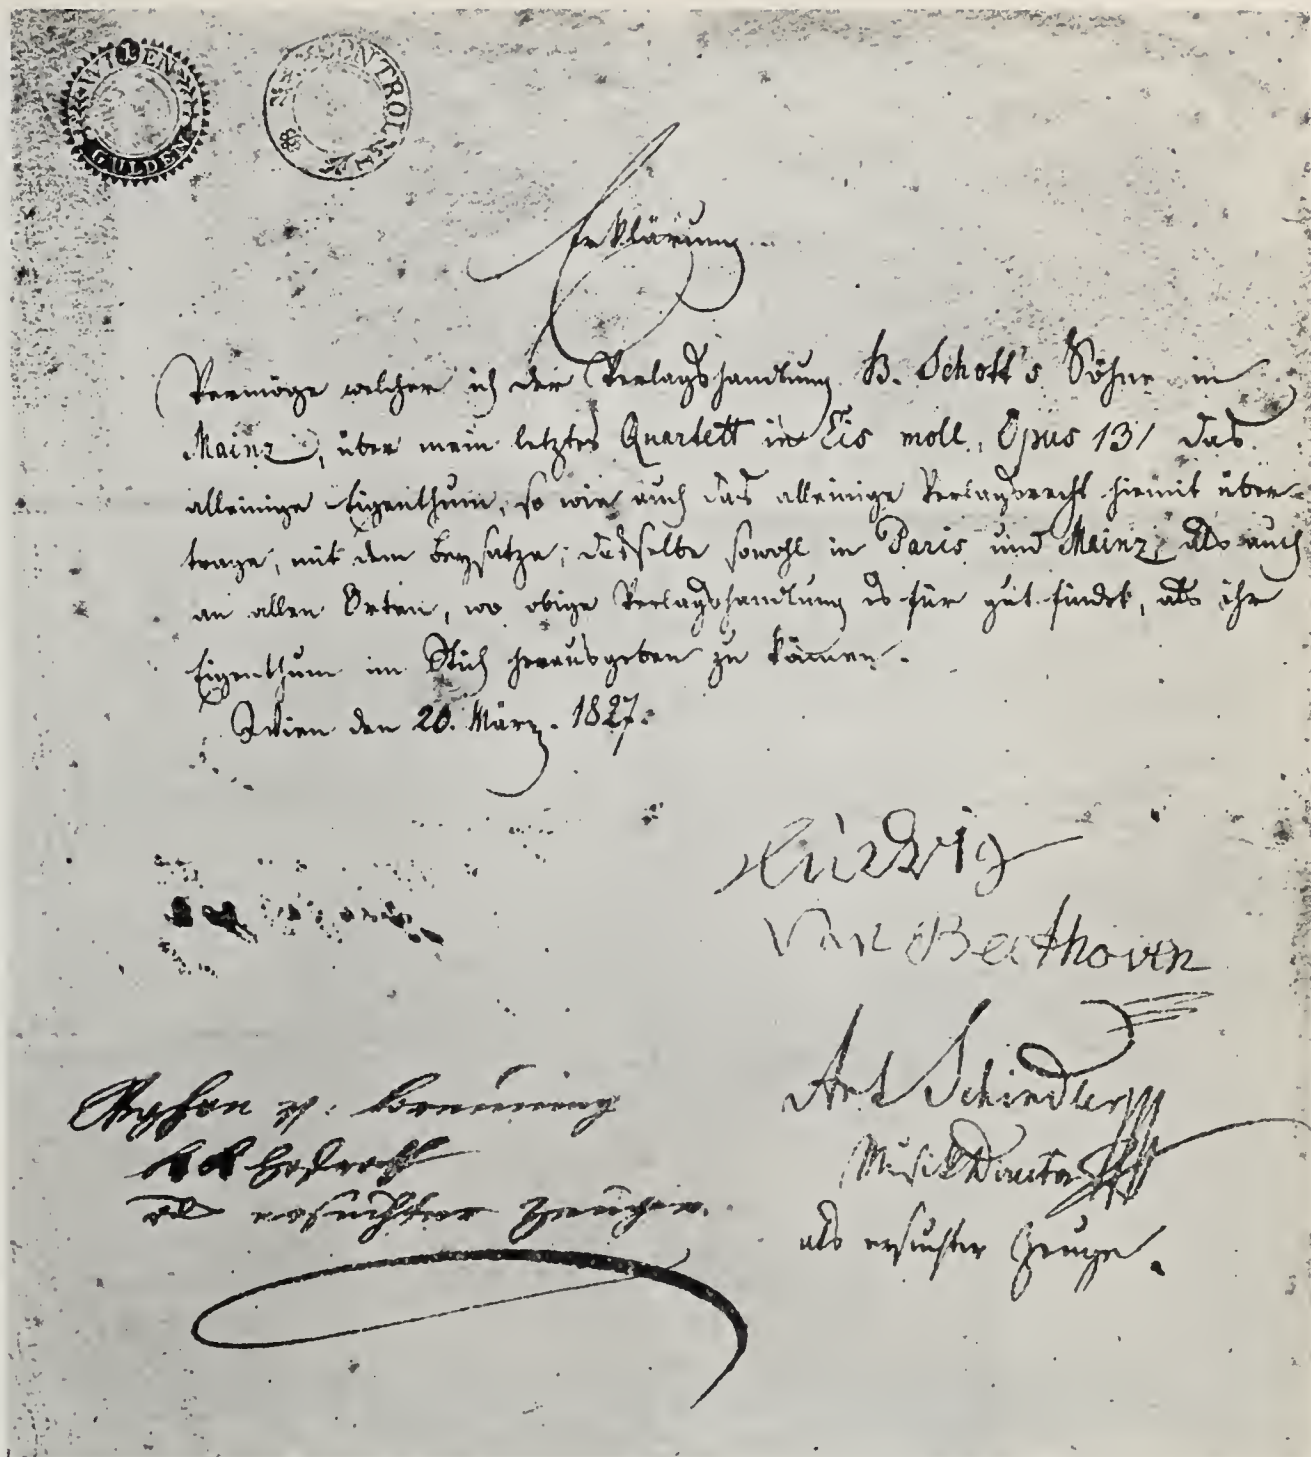 WIEN
1
GULDEN
CONTROLL
Erklärung
Vermöge welcher ich der Verlagshandlung B. Schott's Söhne in
Mainz, über mein letztes Quartett in Cis moll, Opus 131 das
alleinige Eigenthum, so wie auch das alleinige Verlagsrecht hiemit über-
trage, mit dem Beysatze, dasselbe sowohl in Paris und Mainz, als auch
an allen Orten, wo obige Verlagshandlung es für gut findet, als ihr
Eigenthum im Stich herausgeben zu können.
Wien den 20. März. 1827.
Ludwig
van Beethoven
Ant Schindler
MusikDirector
als ersuchter Zeuge.
Stephan v: Breuning
k k Hofrath
als ersuchter Zeuge.